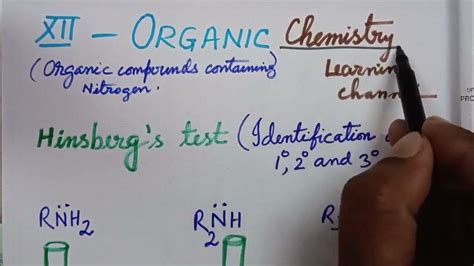 XII - ORGANIC Chemistry
(Organic compounds containing Nitrogen.
Learnin
chann
Hinsberg's test (Identification
1°, 2° and 3°
RN̈H₂
R₂N̈H
R